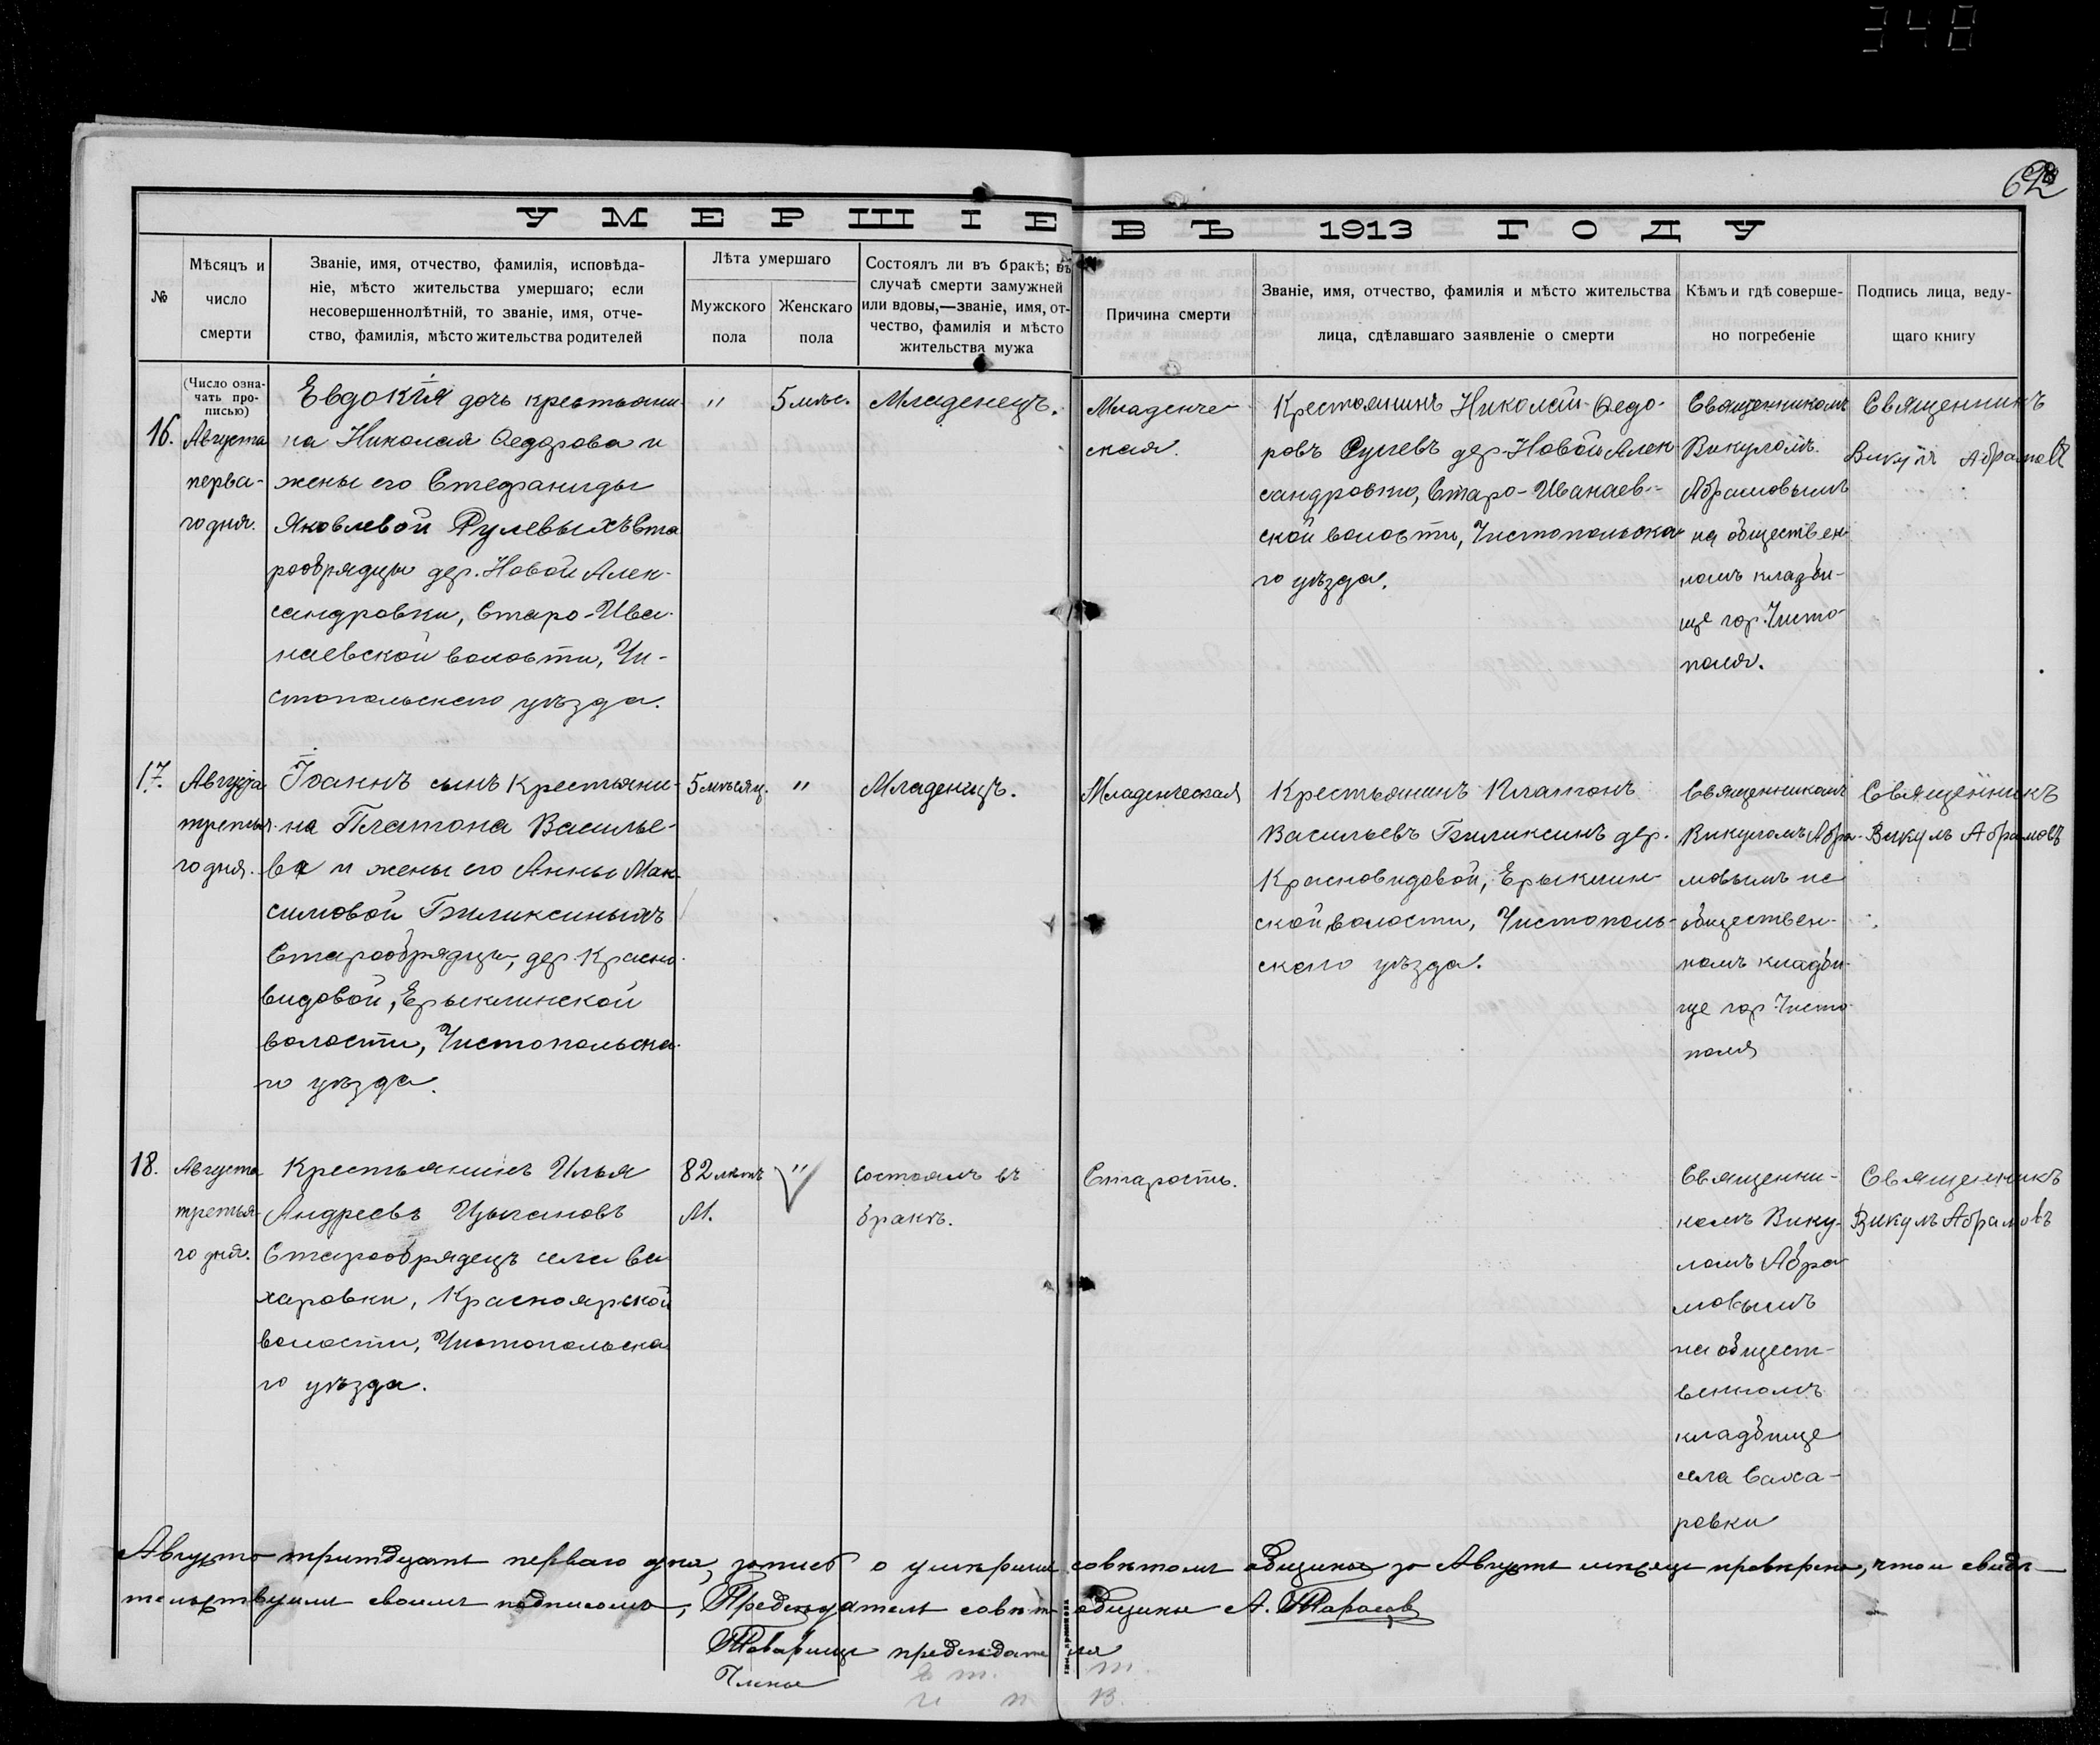 348
62
УМЕРШІЕ ВЪ 1913 ГОДУ
№
Мѣсяцъ и
число
смерти
Званіе, имя, отчество, фамилія, исповѣда-
ніе, мѣсто жительства умершаго; если
несовершеннолѣтній, то званіе, имя, отче-
ство, фамилія, мѣсто жительства родителей
Лѣта умершаго
Мужского
пола
Женскаго
пола
Состоялъ ли въ бракѣ; въ
случаѣ смерти замужней
или вдовы,—званіе, имя, от-
чество, фамилія и мѣсто
жительства мужа
Причина смерти
Званіе, имя, отчество, фамилія и мѣсто жительства
лица, сдѣлавшаго заявленіе о смерти
Кѣмъ и гдѣ соверше-
но погребеніе
Подпись лица, веду-
щаго книгу
(Число озна-
чать про-
писью)
16.
Августа
перва-
го дня.
Евдокія дочь крестьяни-
на Николая Ѳедорова и
жены его Стефаниды
Яковлевой Рулевыхъ Ста
рообрядцы дер. Новой Алек-
сандровки, Старо-Ива-
наевской волости, Чи-
стопольскаго уѣзда.
"
5 мѣс.
Младенецъ.
Младенче-
ская.
Крестьянинъ Николай Ѳедо-
ровъ Рулевъ дер. Новой Алек-
сандровки, Старо-Иванаев-
ской волости, Чистопольска-
го уѣзда.
Священникомъ
Викуломъ
Абрамовымъ
на обществен-
номъ кладби-
ще гор. Чисто-
поля.
Священникъ
Викулъ Абрамовъ
17.
Августа
третья-
го дня.
Іоаннъ сынъ крестьяни-
на Платона Василье-
ва и жены его Анны Мак-
симовой
Старообрядцы, дер. Красно-
видовой, Ерыклинской
волости, Чистопольска-
го уѣзда.
5 мѣсяц.
"
Младенецъ.
Младенческая
Крестьянинъ Платонъ
Васильевъ дер.
Красновидовой, Ерыклин-
ской волости, Чистополь-
скаго уѣзда.
Священникомъ
Викуломъ Абра-
мовымъ на
обществен-
номъ кладби-
ще гор. Чисто-
поля
Священникъ
Викулъ Абрамовъ
18.
Августа
третья-
го дня.
Крестьянинъ Илья
Андреевъ Цыгановъ
Старообрядецъ села Са
харовки, Красноярской
волости, Чистопольска-
го уѣзда.
82 лѣтъ
М.
"
состоялъ въ
бракѣ.
Старость.
Священни-
комъ Вику-
ломъ Абра-
мовымъ
на общест-
венномъ
кладбище
села Саха-
ровки
Священникъ
Викулъ Абрамовъ
Августа тритдцать перваго дня, запись о умершихъ совѣтомъ общины за Августъ мѣсяцъ провѣрена, чтои свидѣ-
тельствуимъ своимъ подписомъ, Председатель совѣта общины А. Тарасов
Товарищъ председателя
Члены